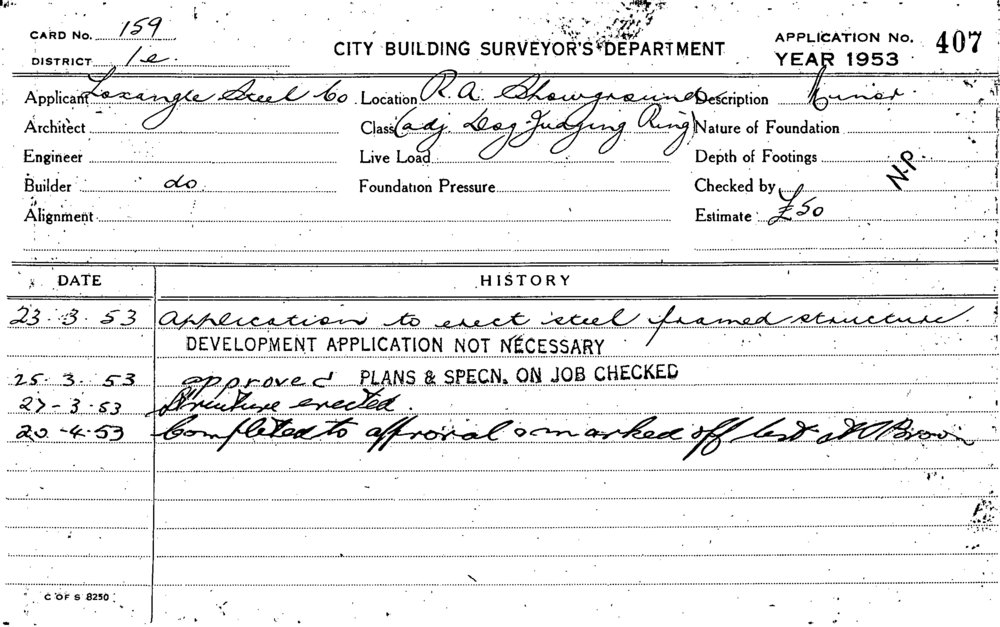 CARD No. 159
DISTRICT 1e.
CITY BUILDING SURVEYOR'S DEPARTMENT
APPLICATION No. 407
YEAR 1953
Applicant Loxangle Steel Co Location R.A. Showground Description Minor.
Architect Class (adj. Dog Judging Ring) Nature of Foundation
Engineer Live Load Depth of Footings N.P.
Builder do. Foundation Pressure Checked by
Alignment Estimate £50
DATE HISTORY
23.3.53 Application to erect steel framed structure.
DEVELOPMENT APPLICATION NOT NECESSARY
25.3.53 approved PLANS & SPECN. ON JOB CHECKED
27-3-53 Structure erected
20-4-53 Completed to approval & marked off list Brown
C OF S 8250